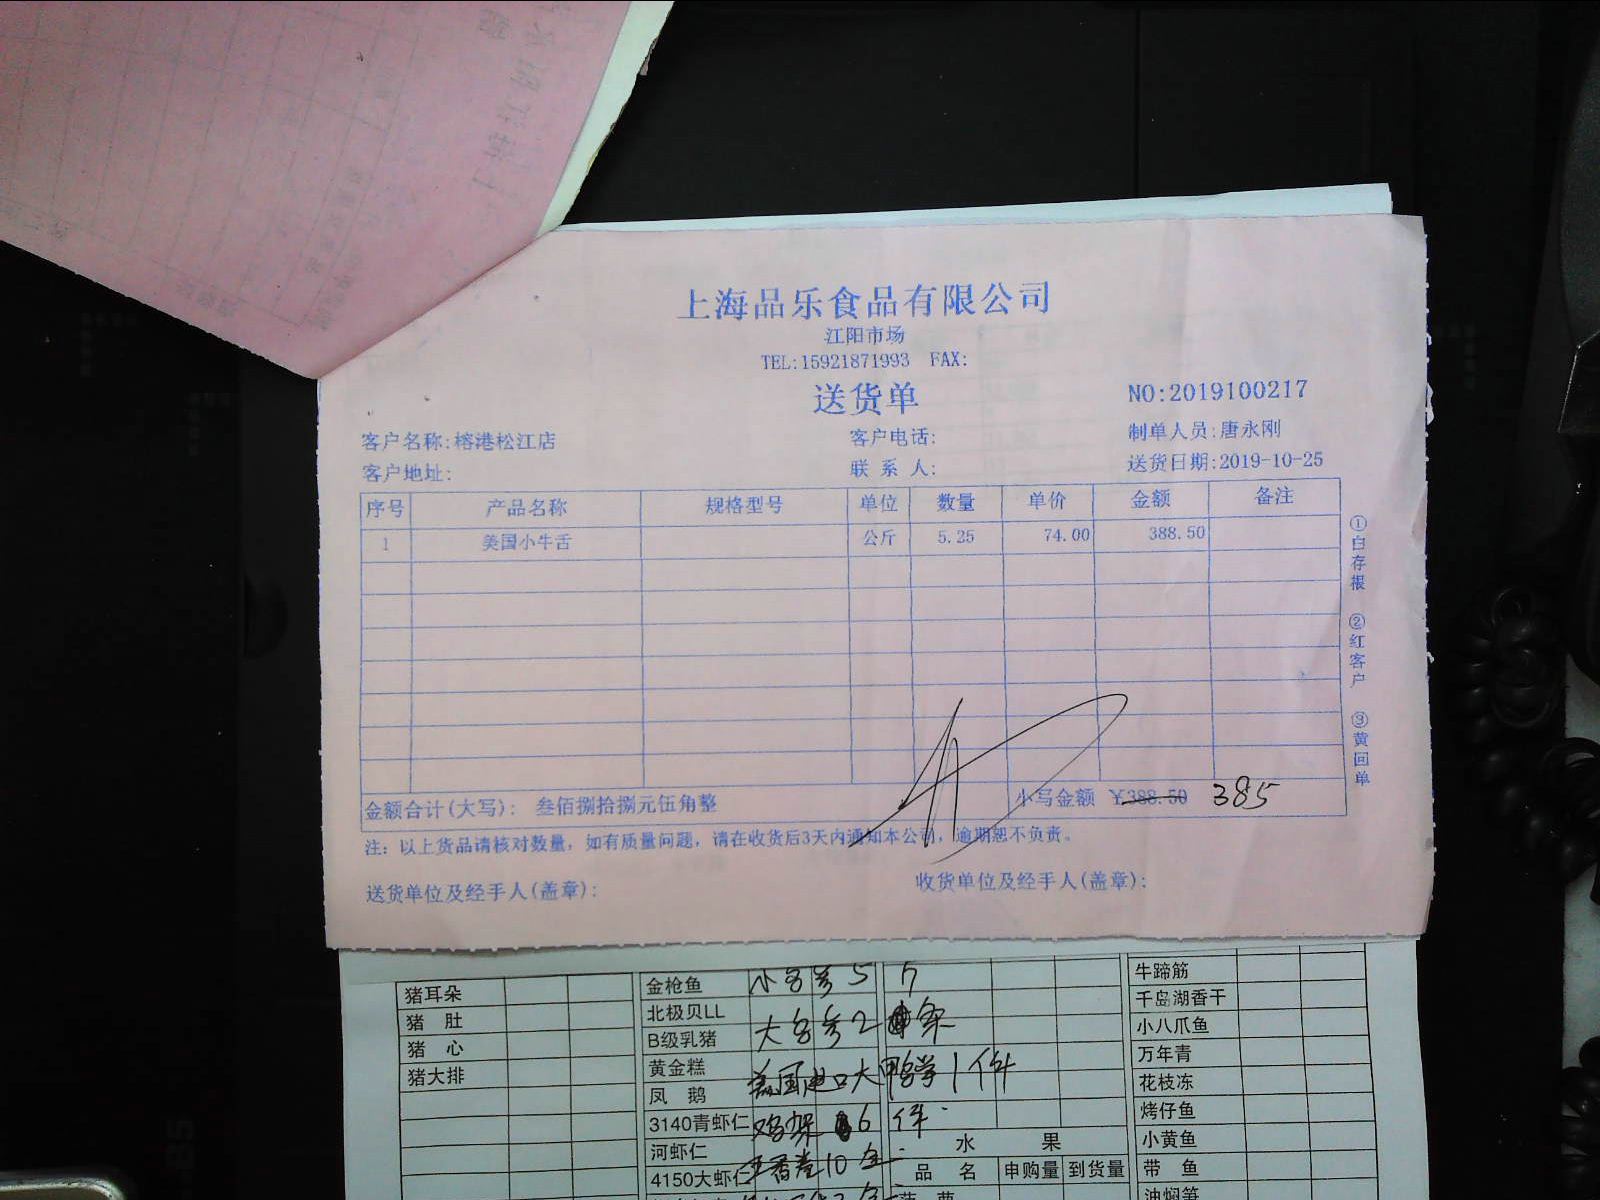 上海品乐食品有限公司
江阳市场
TEL:15921871993 FAX:
送货单
NO:2019100217
客户名称:榕港松江店 客户电话: 制单人员:唐永刚
客户地址: 联系人: 送货日期:2019-10-25
序号 产品名称 规格型号 单位 数量 单价 金额 备注
1 美国小牛舌 公斤 5.25 74.00 388.50
金额合计(大写): 叁佰捌拾捌元伍角整 小写金额 ¥388.50 385
注: 以上货品请核对数量, 如有质量问题, 请在收货后3天内通知本公司, 逾期恕不负责。
送货单位及经手人(盖章): 收货单位及经手人(盖章):
①白存根 ②红客户 ③黄回单
猪耳朵
猪 肚
猪 心
猪大排
金枪鱼
北极贝LL
B级乳猪
黄金糕
凤 鹅
3140青虾仁
河虾仁
4150大虾仁
大 2
美国进口大 1件
鸡架 6件
10
水 果
品 名 申购量 到货量
菠 萝
牛蹄筋
千岛湖香干
小八爪鱼
万年青
花枝冻
烤仔鱼
小黄鱼
带 鱼
油焖笋